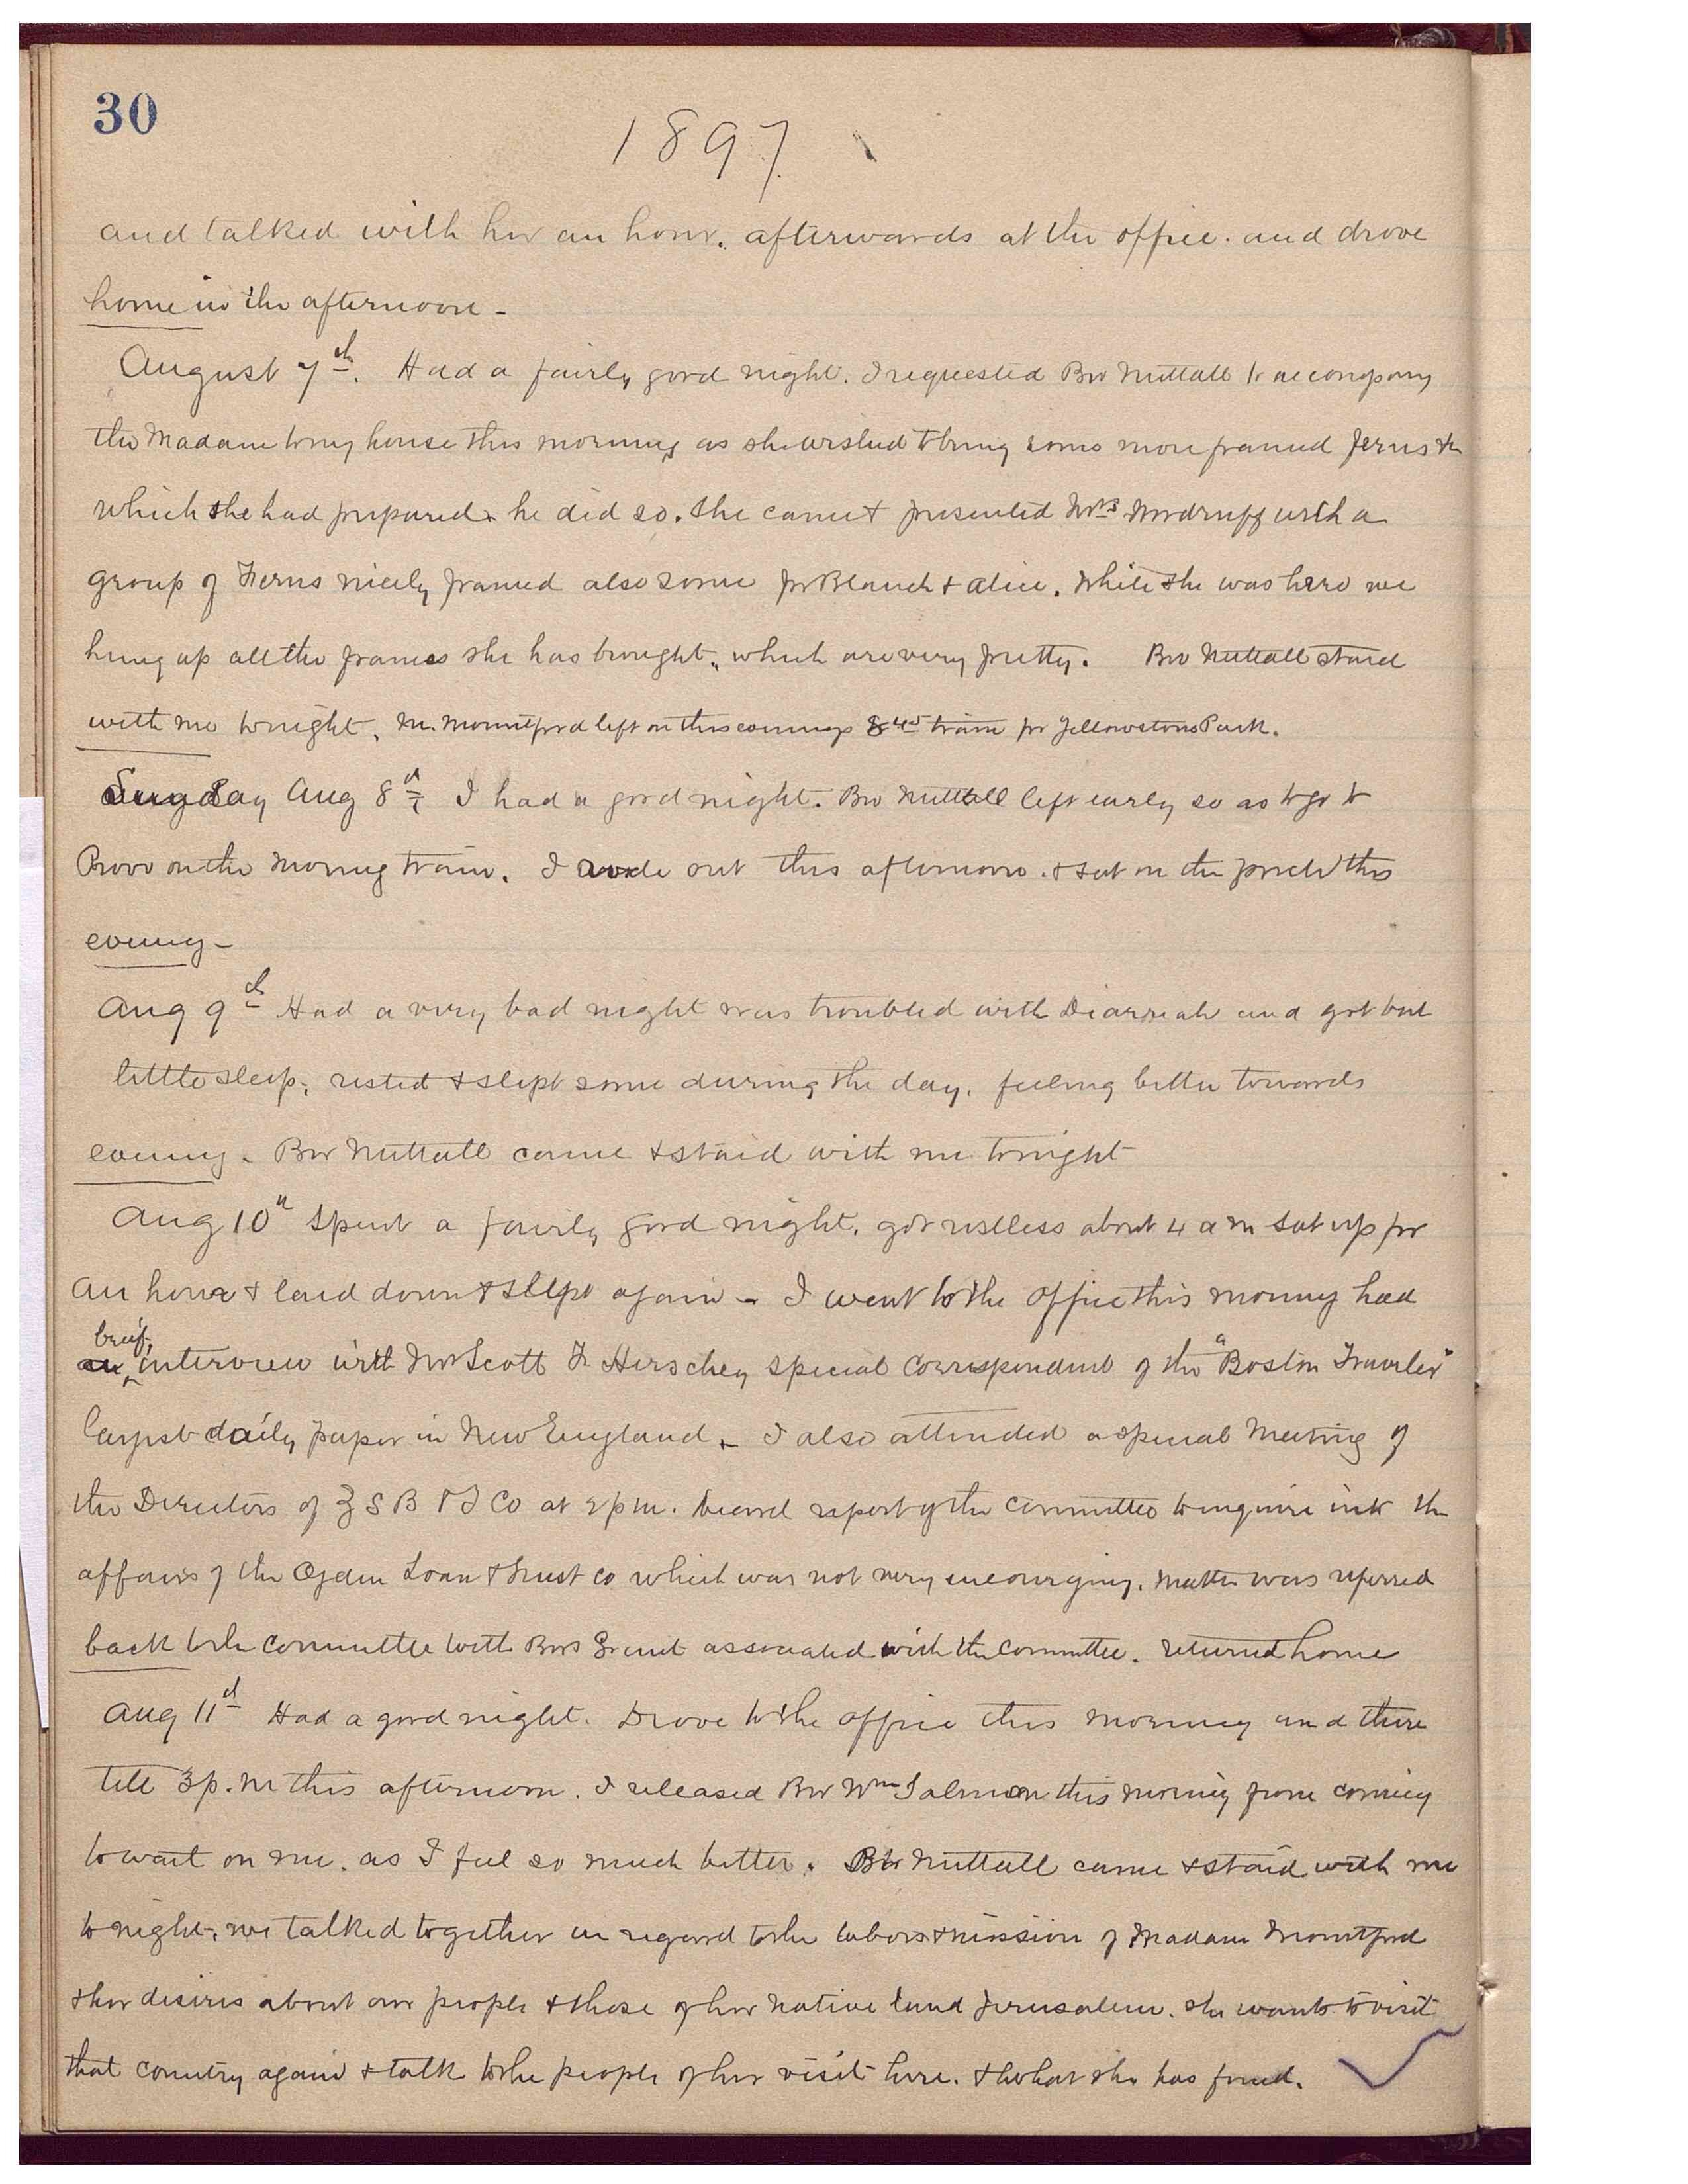 30
1897
and talked with her an hour. afterwards at the office. and drove
home in the afternoon -
August 7th. Had a fairly good night. I requested Bro Nuttall to accompany
the Madame to my house this morning as she wished to bring some more framed Ferns &c
which she had prepared. he did so. She came & presented Mrs Woodruff with a
group of Ferns nicely framed also some for Blanch & Alice. While she was here we
hung up all the frames she has brought, which are very pretty. Bro Nuttall staid
with me tonight. M. Mountford left on this evenings 8 45 train for Yellowstone Park.
Sunday Aug 8th I had a good night. Bro Nuttall left early so as to go to
Provo on the morning train. I rode out this afternoon. & sat on the porch this
evening -
Aug 9th Had a very bad night was troubled with Diarreah and got but
little sleep, rested & slept some during the day. feeling better towards
evening. Bro Nuttall came & staid with me tonight
Aug 10th Spent a fairly good night, got restless about 4 a m sat up for
an hour & laid down & slept again - I went to the office this morning had
a brief interview with Mr Scott F. Herschey special correspondent of the "Boston Traveler"
largest daily paper in New England. - I also attended a special Meeting of
the Directors of Z S B & T Co at 2 p m. heard report of the committee to inquire into the
affairs of the Ogden Loan & Trust Co which was not very encouraging. matter was referred
back to the committee with Bro Grant associated with the Committee. returned home
Aug 11th Had a good night. Drove to the office this morning and there
till 3 p. m this afternoon. I released Bro Wm Salmon this morning from coming
to wait on me. as I feel so much better. Bro Nuttall came & staid with me
to night. we talked together in regard to the labors & mission of Madam Mountford
& her desires about our people & those of her native land Jerusalem. she wants to visit
that country again & talk to the people of her visit here. & what she has found.